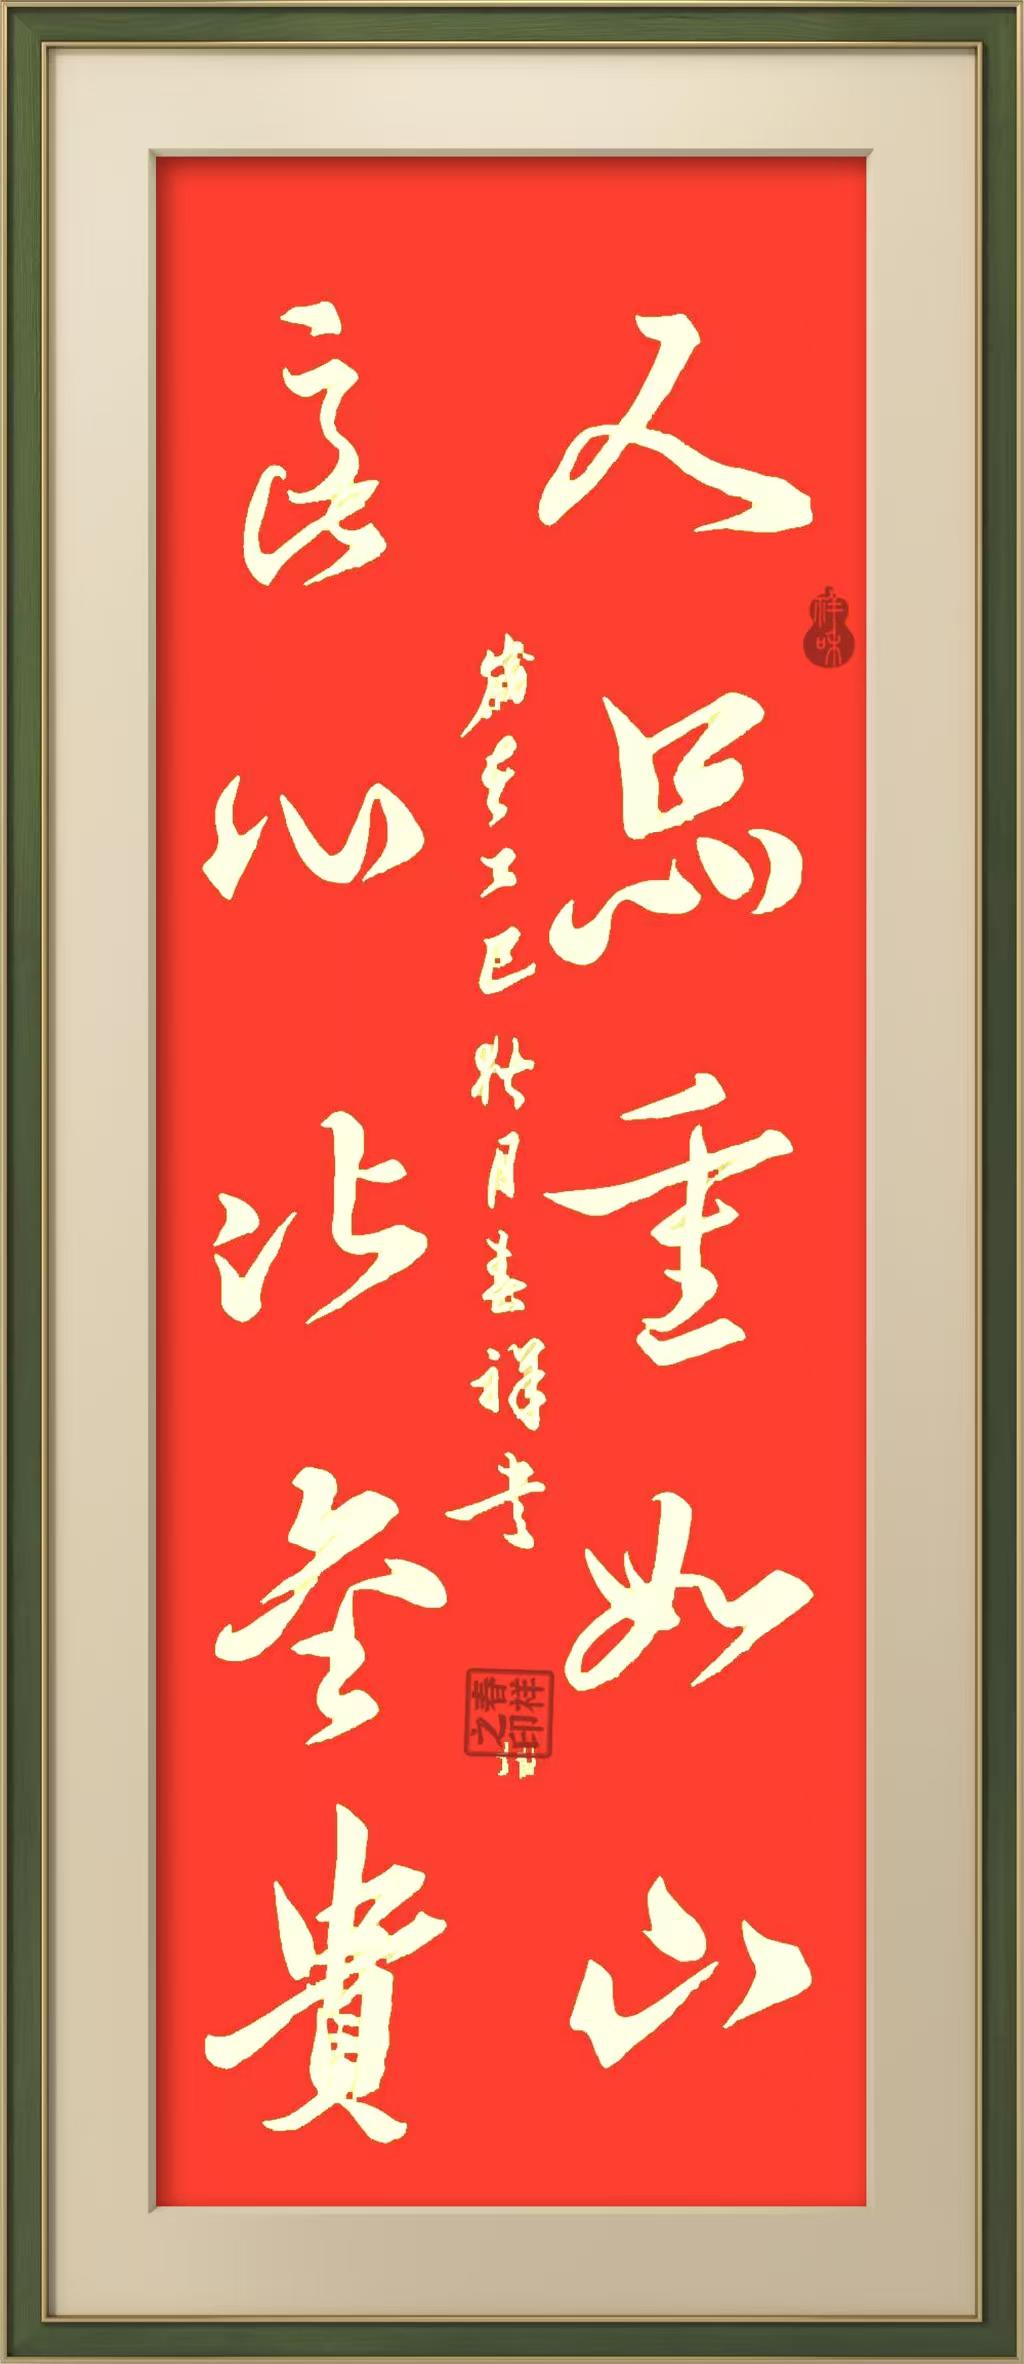 父恩重如山
良心比金貴
歲在乙巳秋月春祥书
春祥之印